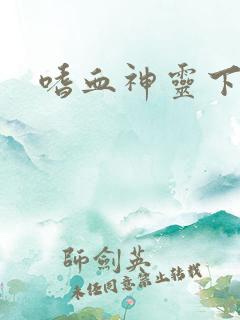 嗜血神靈下
師劍英
未經同意禁止轉載